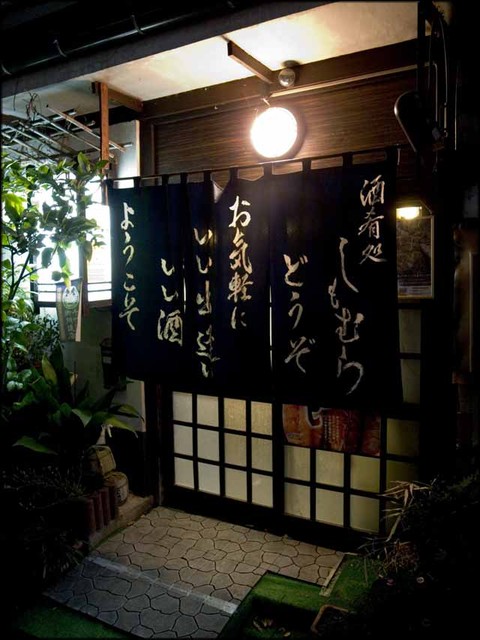 酒肴処
しもむら
どうぞ
お気軽に
いい出逢い
いい酒
ようこそ